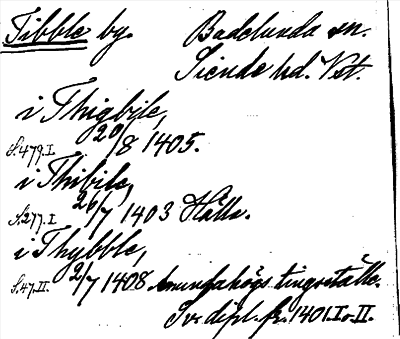 Tibble by. Badelunda sn.
Siende hd. Vst.
i Thigbile,
S.479.I. 20/8 1405.
i Thibile,
S.277.I 26/7 1403 Hälla.
i Thybble,
S.47.II. 2/7 1408 Amundahögs tingställe.
Sv. dipl. fr. 1401.I o. II.